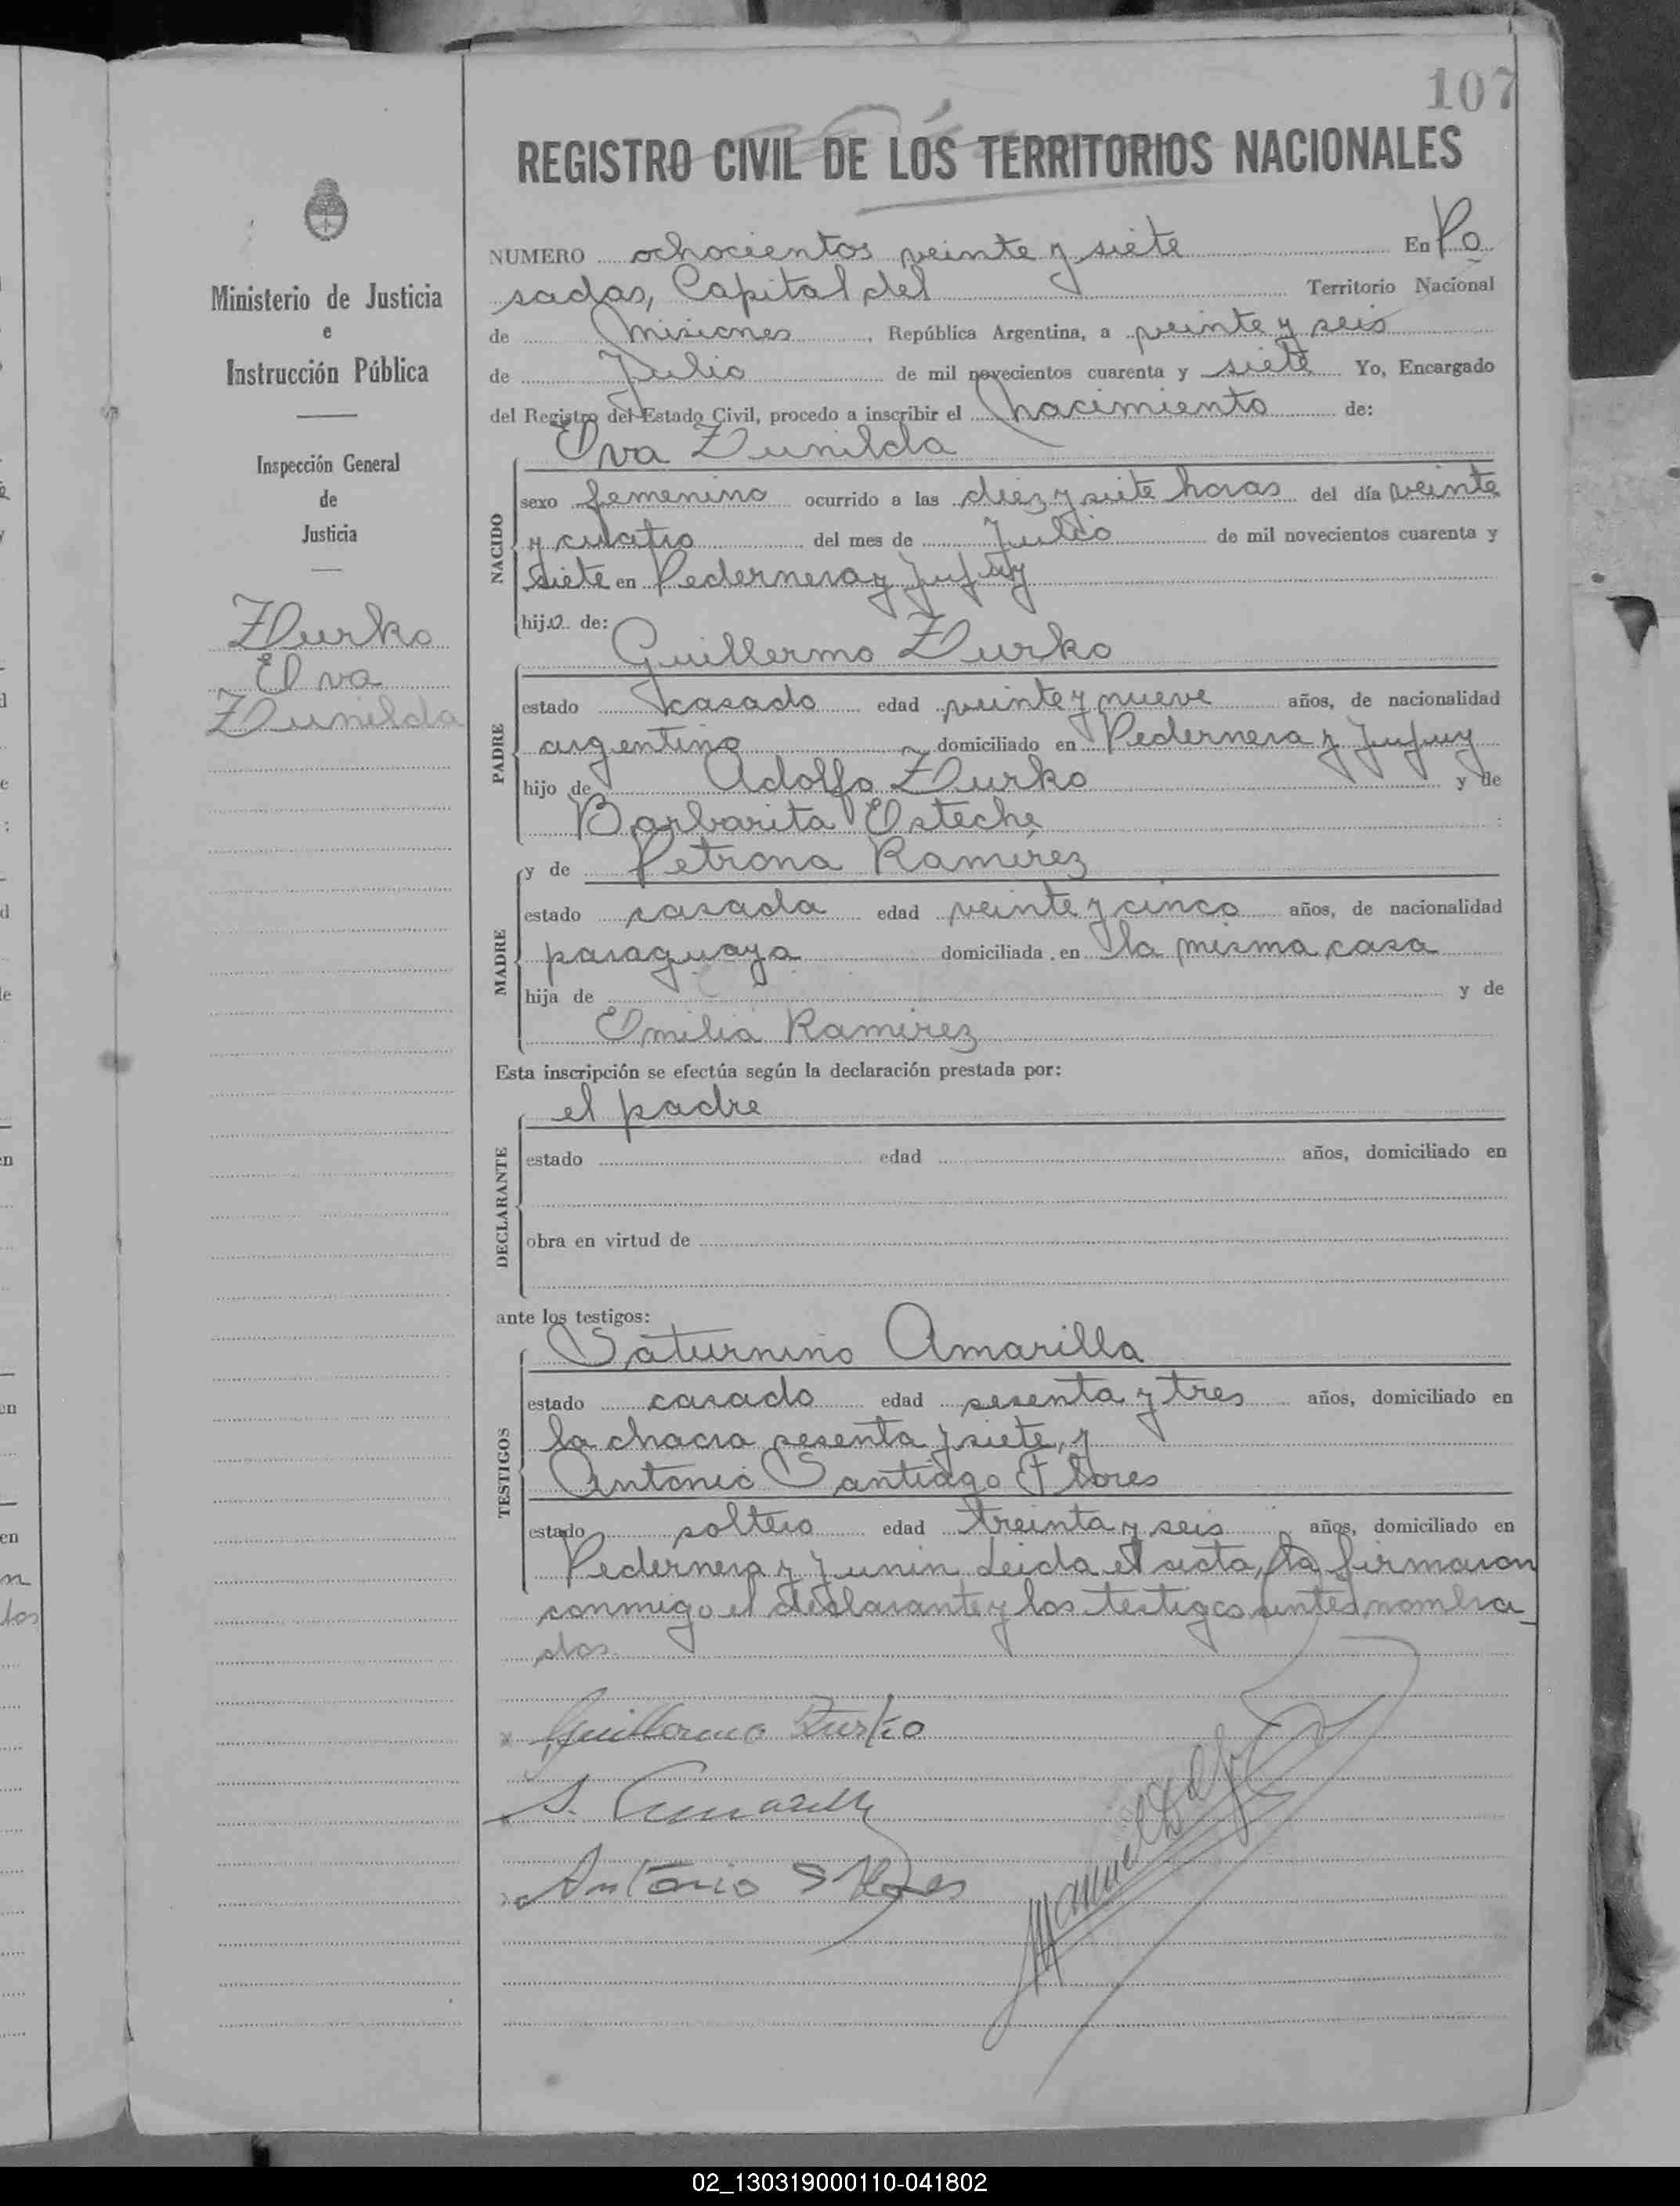 107
REGISTRO CIVIL DE LOS TERRITORIOS NACIONALES
Ministerio de Justicia
e
Instrucción Pública
Inspección General
de
Justicia
Zurko
Elva
Zunilda
NUMERO ochocientos veinte y siete En Po
sadas, Capital del Territorio Nacional
de Misiones, República Argentina, a veinte y seis
de Julio de mil novecientos cuarenta y siete Yo, Encargado
del Registro del Estado Civil, procedo a inscribir el nacimiento de:
Elva Zunilda
NACIDO
sexo femenino ocurrido a las diez y siete horas del día veinte
y cuatro del mes de Julio de mil novecientos cuarenta y
siete en Pedernera y Jujuy
hija de:
Guillermo Zurko
PADRE
estado casado edad veinte y nueve años, de nacionalidad
argentino domiciliado en Pedernera y Jujuy
hijo de Adolfo Zurko y de
Barbarita Esteche
MADRE
y de Petrona Ramirez
estado casada edad veinte y cinco años, de nacionalidad
paraguaya domiciliada en la misma casa
hija de y de
Emilia Ramirez
Esta inscripción se efectúa según la declaración prestada por:
el padre
DECLARANTE
estado edad años, domiciliado en
obra en virtud de
ante los testigos:
Saturnino Amarilla
TESTIGOS
estado casado edad sesenta y tres años, domiciliado en
la chacra sesenta y siete, y
Antonio Santiago Flores
estado soltero edad treinta y seis años, domiciliado en
Pedernera y Junin. Leida el acta, la firmaron
conmigo el declarante y los testigos antes nombra-
dos.
Guillermo Zurko
S. Amarilla
Antonio S Flores
Manuel
02_130319000110-041802